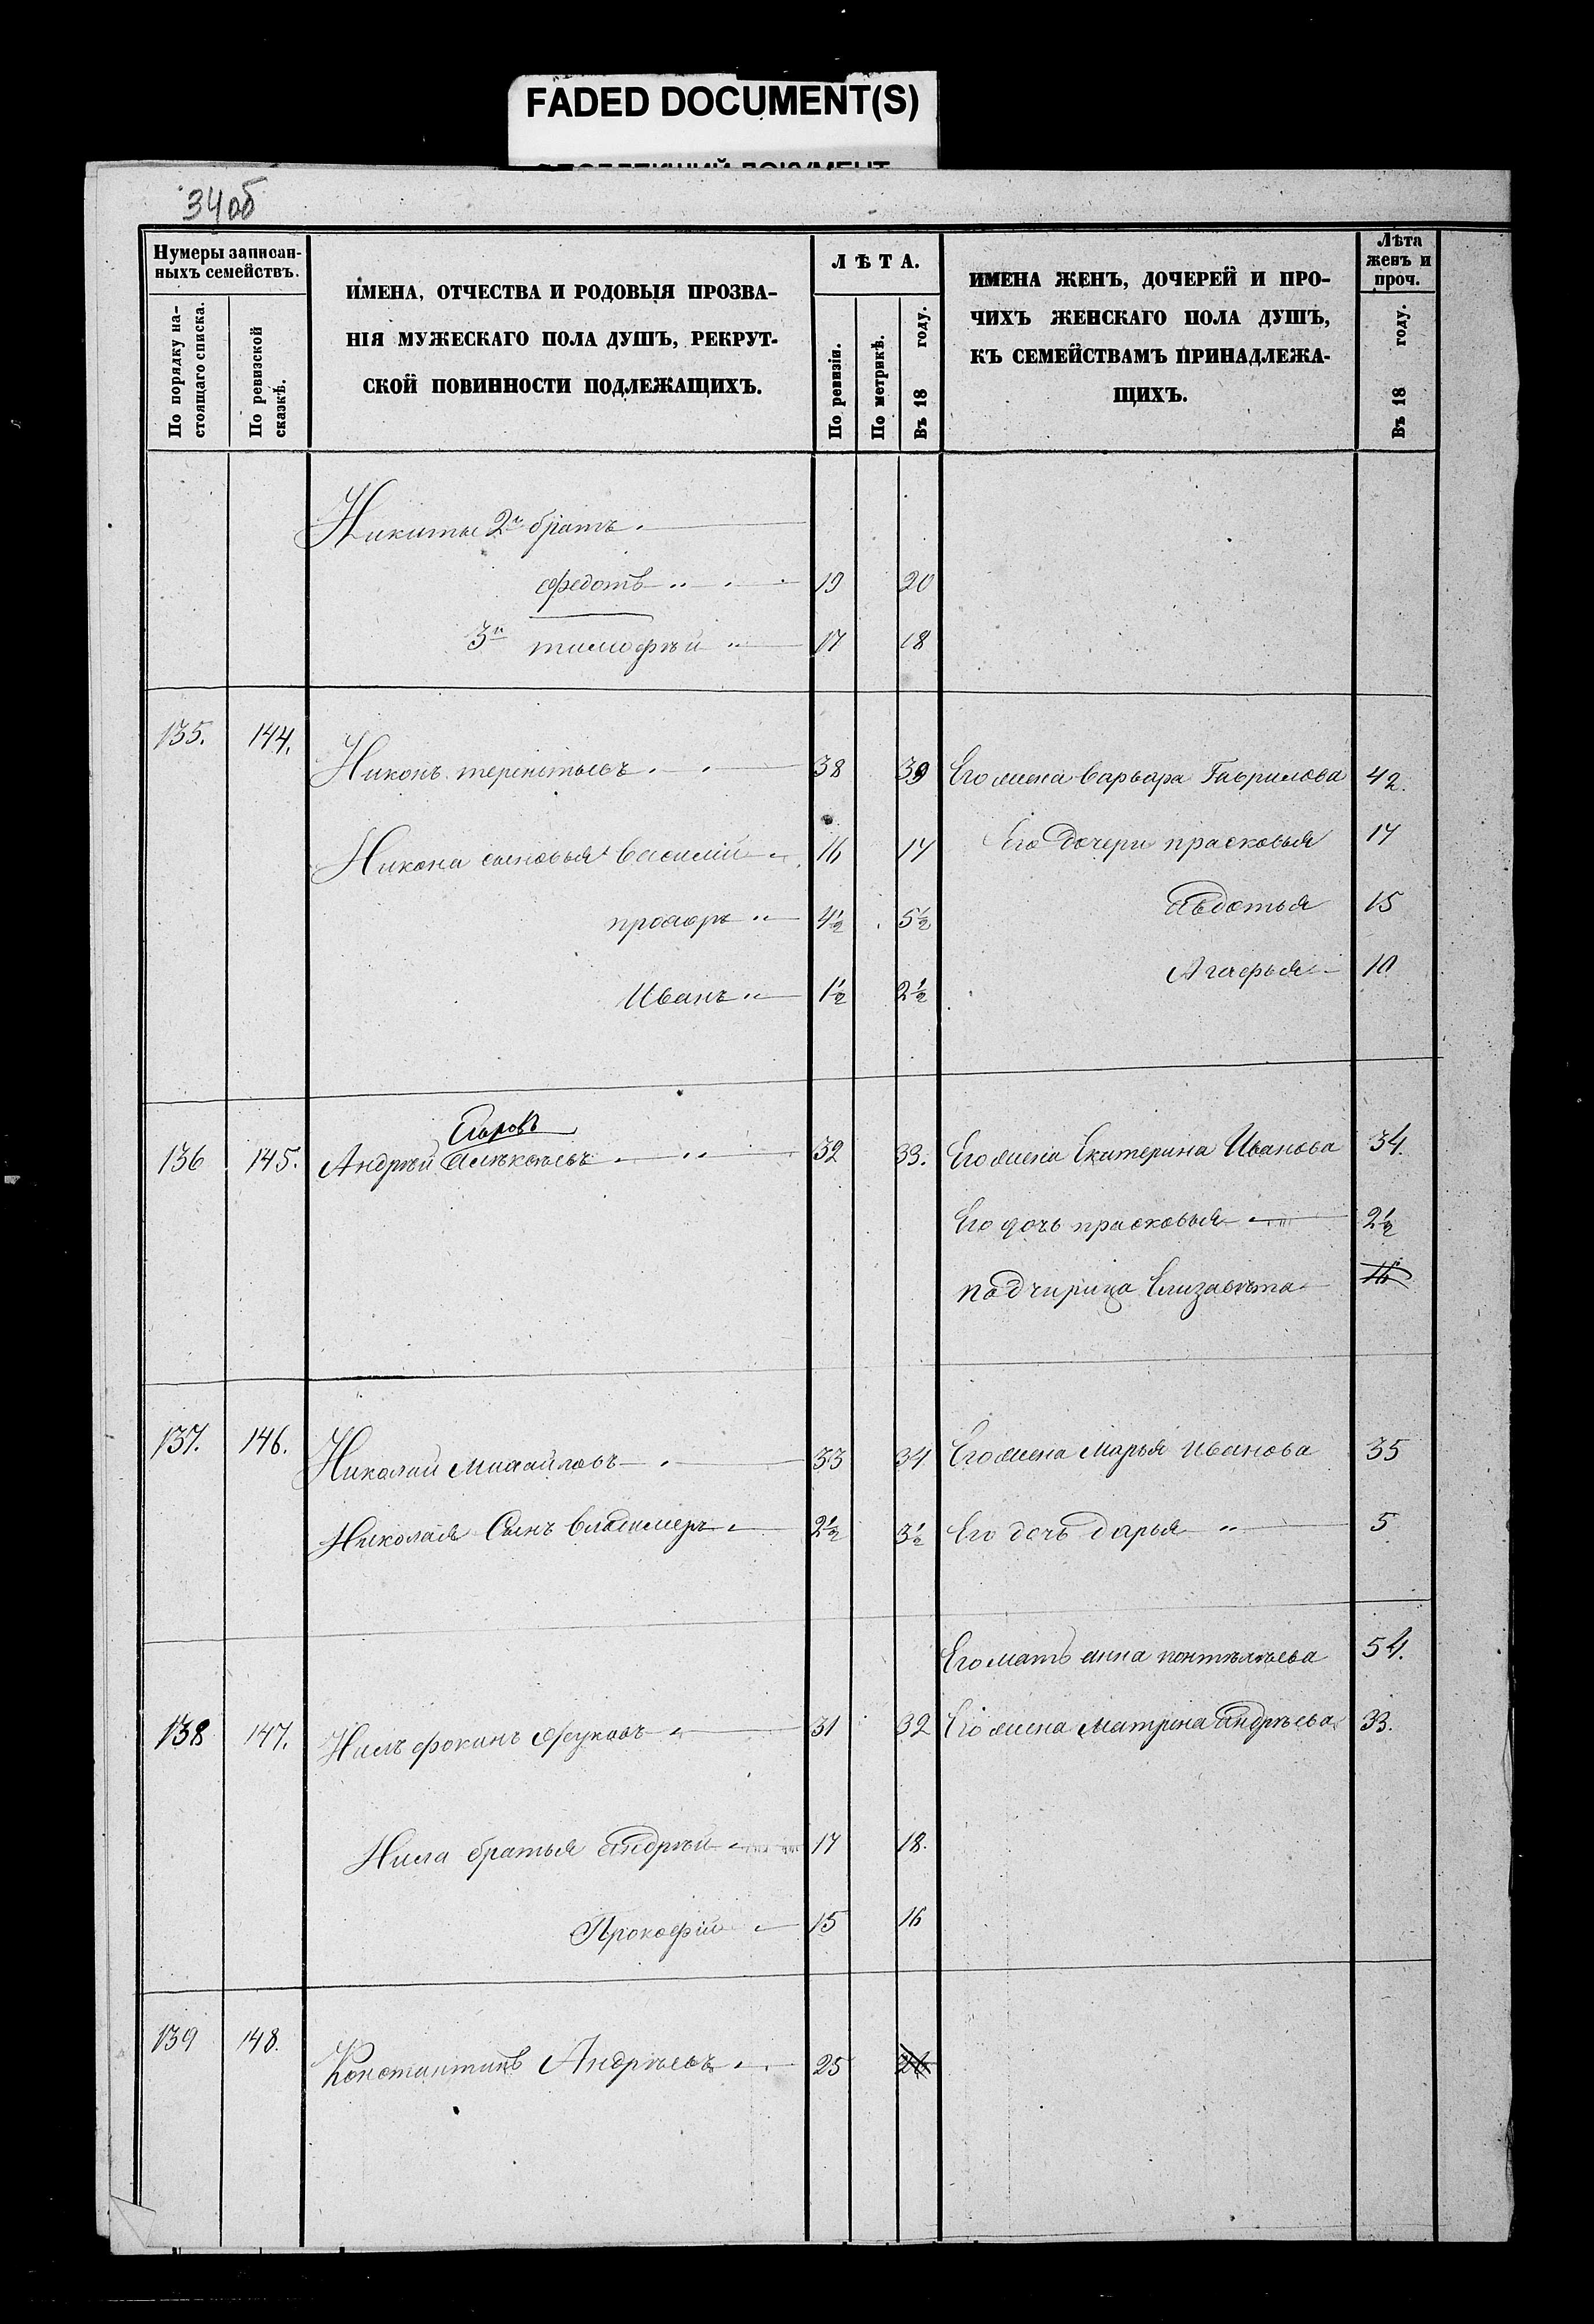 FADED DOCUMENT(S)
34об
Нумеры записан-
ныхъ семействъ.
По порядку на-
стоящаго списка.
По ревизской
сказкѣ.
ИМЕНА, ОТЧЕСТВА И РОДОВЫЯ ПРОЗВА-
НІЯ МУЖЕСКАГО ПОЛА ДУШЪ, РЕКРУТ-
СКОЙ ПОВИННОСТИ ПОДЛЕЖАЩИХЪ.
ЛѢТА.
По ревизіи.
По метрикѣ.
Въ 18 году.
ИМЕНА ЖЕНЪ, ДОЧЕРЕЙ И ПРО-
ЧИХЪ ЖЕНСКАГО ПОЛА ДУШЪ,
КЪ СЕМЕЙСТВАМЪ ПРИНАДЛЕЖА-
ЩИХЪ.
Лѣта
женъ и
проч.
Въ 18 году.
Никиты 2й братъ
Федотъ 19 20
3й тимофѣй 17 18
135. 144. Никонъ терентьевъ 38 39 Его жена варвара Гаврилова 42.
Никона сыновья Василій 16 17 Его дочери прасковья 17
прохоръ 4½ 5½ Авдотья 15
Иванъ 1½ 2½ Агафья 10
Гыровъ
136 145. Андрѣй Алѣксѣевъ 32 33. Его жена Екатерина Иванова 34.
Его дочь прасковья 2½
падчирица Елизавѣта 16
137. 146. Николай Михайловъ 33 34 Его жена Марья иванова 35
Николая Сынъ Владимеръ 2½ 3½ Его дочь дарья 5
Его мать анна понтѣлѣева 54.
138 147. Нилъ фокинъ Жуковъ 31 32 Его жена Матрена андрѣева 33.
Нила братья андрѣй 17 18.
Прокофій 15 16
139 148. Константинъ Андрѣевъ 25 26